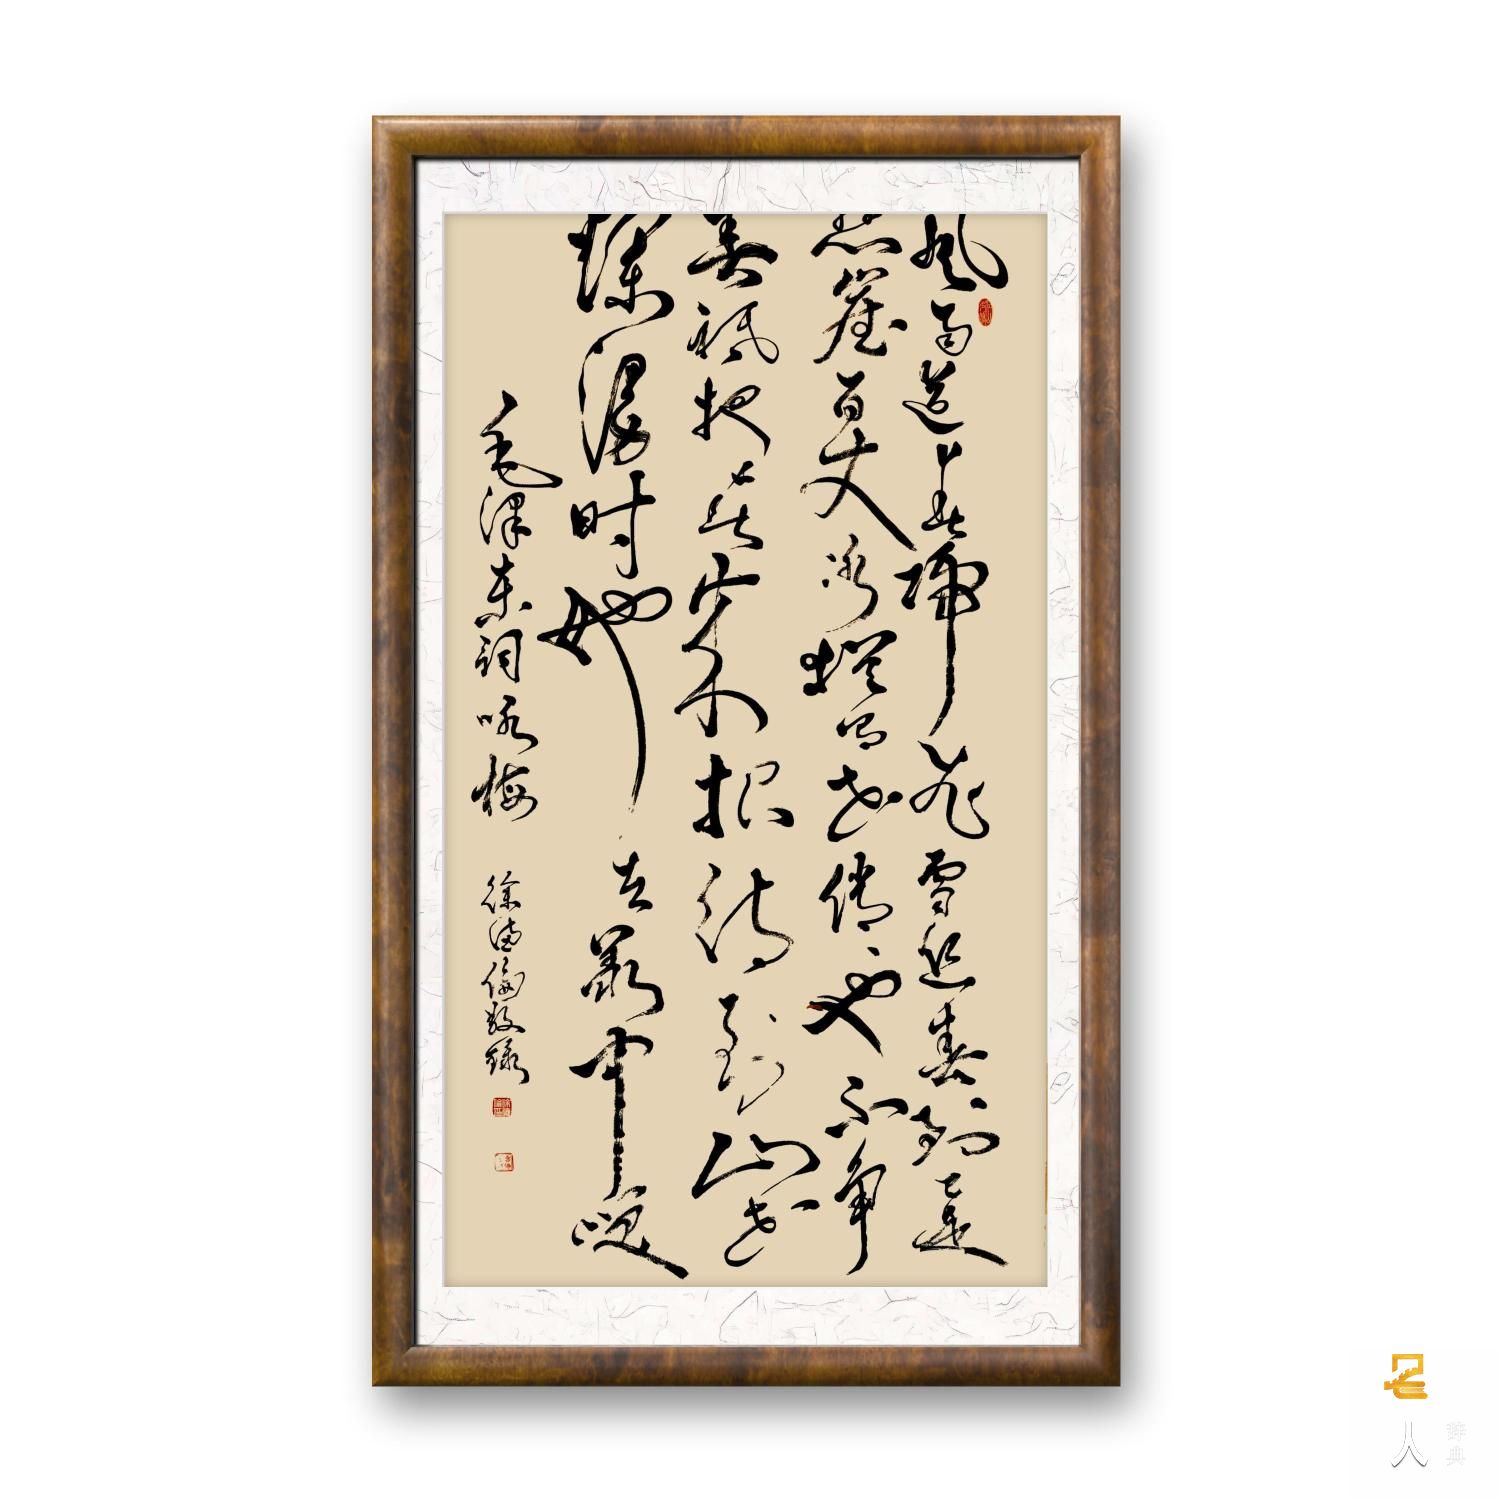 風雨送春歸飛雪迎春到已是
悬崖百丈冰犹有花俏也不争
春祇把春来报待到山花
爛漫时她在叢中咲
毛泽东词咏梅 徐德敬录
人
辞典